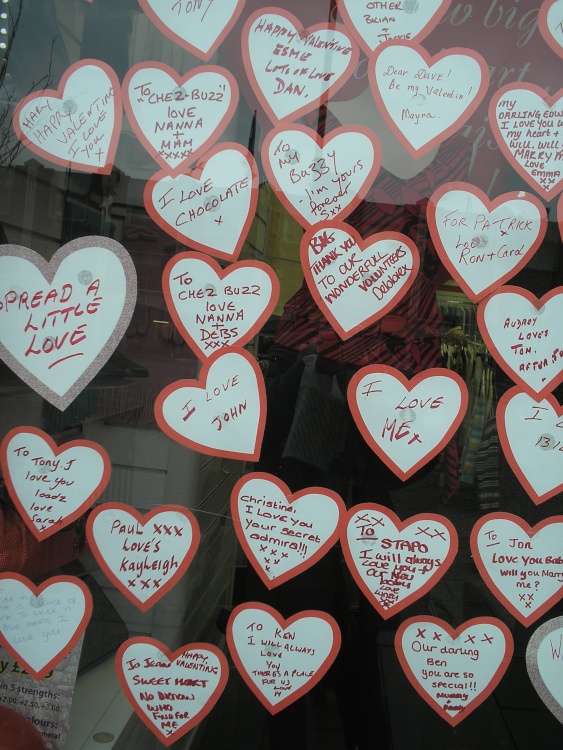 TONY
OTHER
BRIAN
+
HAPPY VALENTINE
ESME
LOTS OF LOVE
DAN.
Dear Dave!
Be my Valentin!
Mayra.
HAPPY
VALENTINE
I LOVE
YOU
X
TO
"CHEZ-BUZZ"
LOVE
NANNA
+
MAM
xxxx
MY
DARLING
I LOVE YOU
my heart +
Will.
MARRY
love
Emma
xx
TO
MY
BUZZY
I'm yours
forever
xx
I LOVE
CHOCOLATE
x
FOR PATRICK
Love
Ron + Carol
BIG
THANK YOU
TO OUR
WONDERFUL
VOLUNTEERS
SPREAD A
LITTLE
LOVE
TO
CHEZ BUZZ
love
NANNA
+
DEBS
xxx
AUDREY
LOVES
TOM.
I LOVE
JOHN
I LOVE
ME x
I
13
To Tony.I
love you
loadz
love
Sarah
x
PAUL XXX
LOVE'S
Kayleigh
xxx
christine,
I Love you
your secret
admira!!!
x x
x x
x
XX XX
To STAPO
I will always
Love you +
Our
To Jon
Love You Bab
Will you Marr
me?
xx
x
love you
HAPPY
VALENTINE
SWEET HEART
NO
WHO
FIND FOR
ME
TO KEN
I WILL ALWAYS
LOVE
YOU
THERE'S A PLACE
FOR US
x x x x x
Our darling
Ben
you are so
special!!
in 5 strengths:
+2.00, +2.50, +3.00
colours:
metal